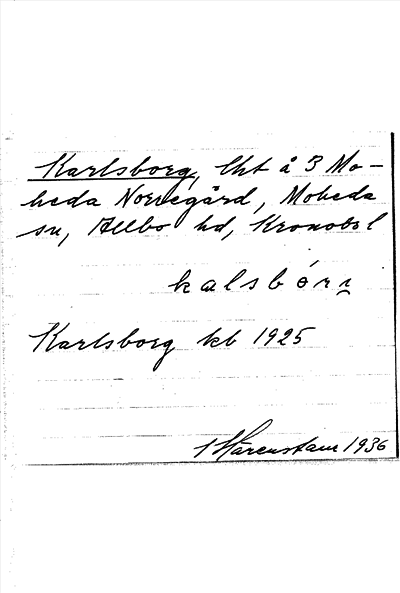 Karlsborg, lht å 3 Mo-
heda Norregård, Moheda
sn, Allbo hd, Kronobel
kalsbórı̯
Karlsborg kb 1925
Härenstam 1936